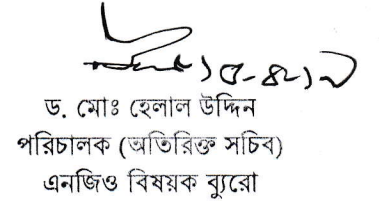 ড. মোঃ হেলাল উদ্দিন
পরিচালক (অতিরিক্ত সচিব)
এনজিও বিষয়ক ব্যুরো